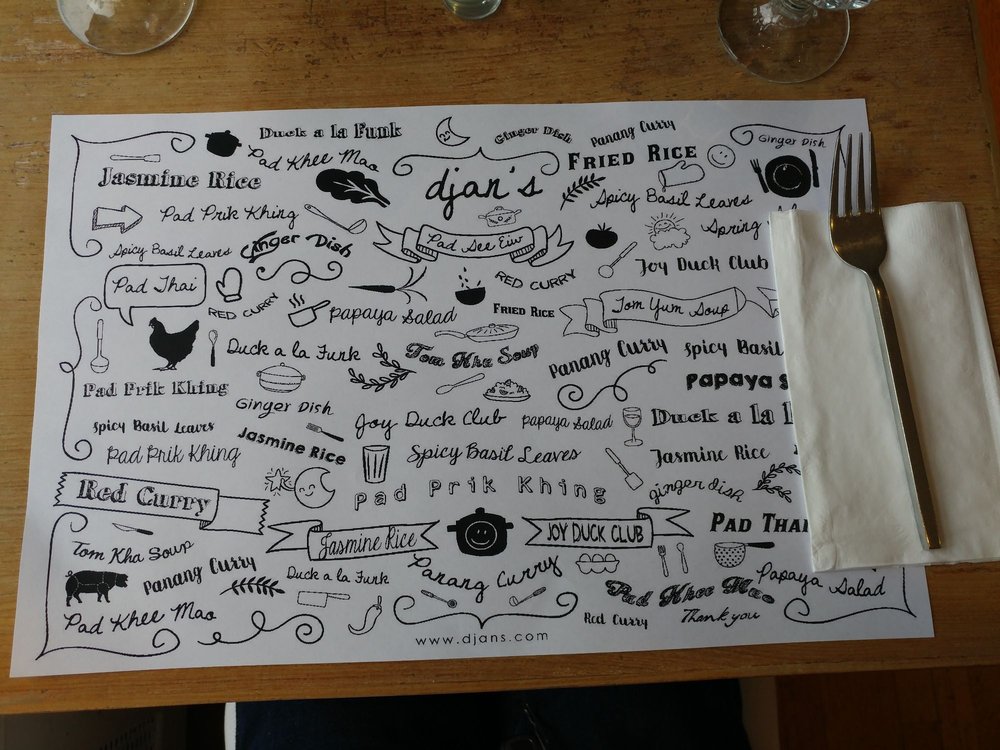 Duck a la Funk
Ginger Dish
Panang Curry
Ginger Dish
Pad Khee Mao
FRIED RICE
Jasmine Rice
djan's
Spicy Basil Leaves
Pad Prik Khing
Spring
Spicy Basil Leaves
Ginger Dish
Pad See Eiw
Joy Duck Club
Pad Thai
RED CURRY
RED CURRY
Papaya Salad
FRIED RICE
Tom Yum Soup
Duck a la Funk
Tom Kha Soup
Panang Curry
Spicy Basil
Pad Prik Khing
Papaya S
Ginger Dish
Joy Duck Club
Papaya Salad
Duck a la
Spicy Basil Leaves
Jasmine Rice
Pad Prik Khing
Spicy Basil Leaves
Jasmine Rice
Red Curry
Pad Prik Khing
ginger dish
Jasmine Rice
JOY DUCK CLUB
PAD THAI
Tom Kha Soup
Panang Curry
Duck a la Funk
Panang Curry
Pad Khee Mao
Papaya Salad
Pad Khee Mao
Red Curry
Thank you
www.djans.com